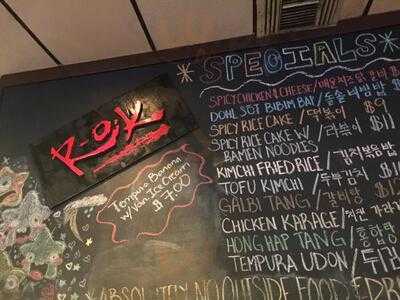 SPECIALS
SPICY CHICKEN & CHEESE
DOHL SOT BIBIM BAP / 돌솥비빔밥 $
SPICY RICE CAKE / 떡볶이 $9
SPICY RICE CAKE W/ / 라볶이 $11
RAMEN NOODLES
KIMCHI FRIED RICE / 김치볶음밥
TOFU KIMCHI / 두부김치 $
GALBI TANG / 갈비탕 $12
CHICKEN KARAGE / 치킨 가라
HONG HAP TANG / 홍합탕
TEMPURA UDON / 튀김
R-O-K
Tempura Banana
w/ Van. Ice Cream
$7.00
*ABSOLUTELY NO OUTSIDE FOOD